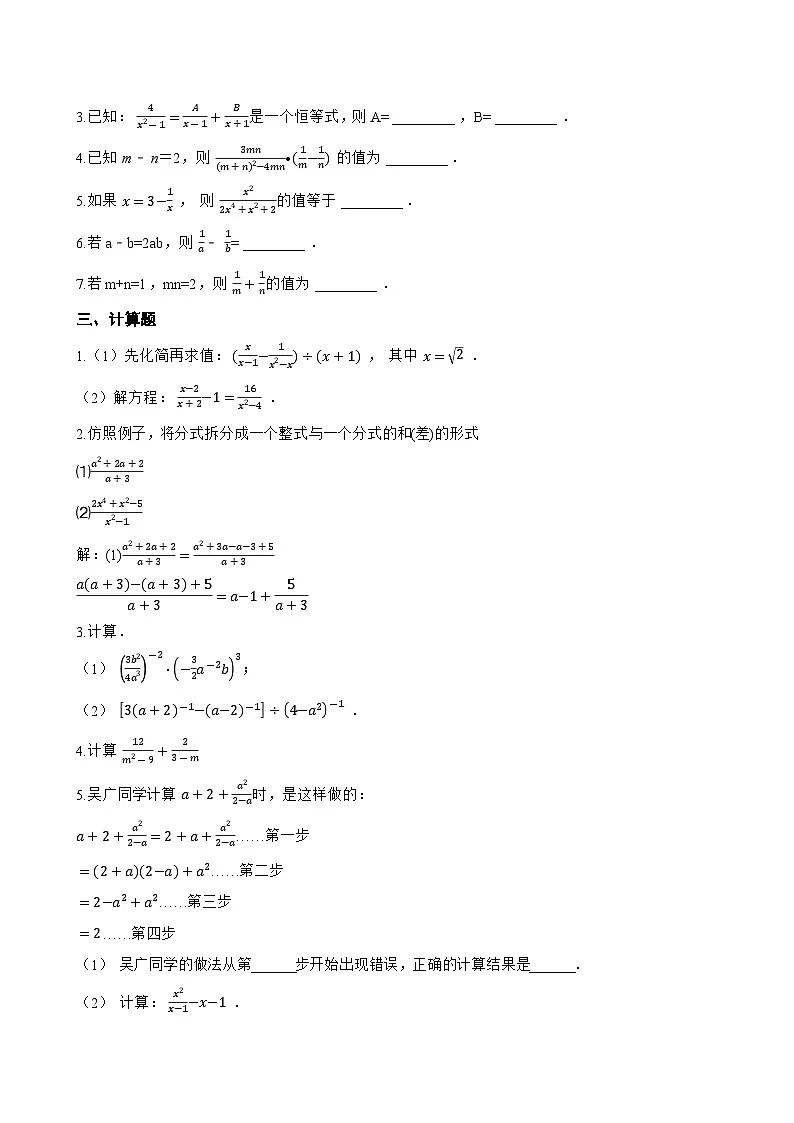 3.已知： 4/(x²−1)=A/(x−1)+B/(x+1)是一个恒等式，则 A= ________ ，B= ________ ．
4.已知 m﹣n＝2，则 3mn/((m+n)²−4mn)•(1/m−1/n) 的值为 ________ ．
5.如果 x=3−1/x ， 则 x²/(2x⁴+x²+2)的值等于 ________ ．
6.若 a﹣b=2ab，则 1/a﹣1/b= ________ ．
7.若 m+n=1，mn=2，则 1/m+1/n的值为 ________ ．
三、计算题
1.（1）先化简再求值：(x/(x−1)−1/(x²−x))÷(x+1) ， 其中 x=√2 ．
（2）解方程：(x−2)/(x+2)−1=16/(x²−4) ．
2.仿照例子，将分式拆分成一个整式与一个分式的和(差)的形式
⑴(a²+2a+2)/(a+3)
⑵(2x⁴+x²−5)/(x²−1)
解：(1)(a²+2a+2)/(a+3)=(a²+3a−a−3+5)/(a+3)
(a(a+3)−(a+3)+5)/(a+3)=a−1+5/(a+3)
3.计算．
（1） (3b²/4a³)⁻²·(−3/2a⁻²b)³；
（2） [3(a+2)⁻¹−(a−2)⁻¹]÷(4−a²)⁻¹ ．
4.计算 12/(m²−9)+2/(3−m)
5.吴广同学计算 a+2+a²/(2−a)时，是这样做的：
a+2+a²/(2−a)=2+a+a²/(2−a)……第一步
=(2+a)(2−a)+a²……第二步
=2−a²+a²……第三步
=2……第四步
（1） 吴广同学的做法从第______步开始出现错误，正确的计算结果是______．
（2） 计算：x²/(x−1)−x−1 ．